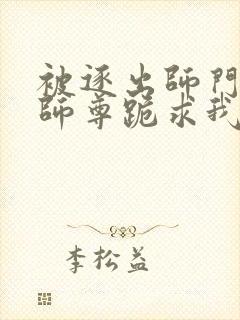 被逐出師門
師尊跪求我
李松益